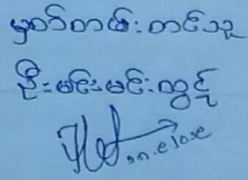 မှတ်တမ်းတင်သူ
ဦးမင်းမင်းထွဋ်